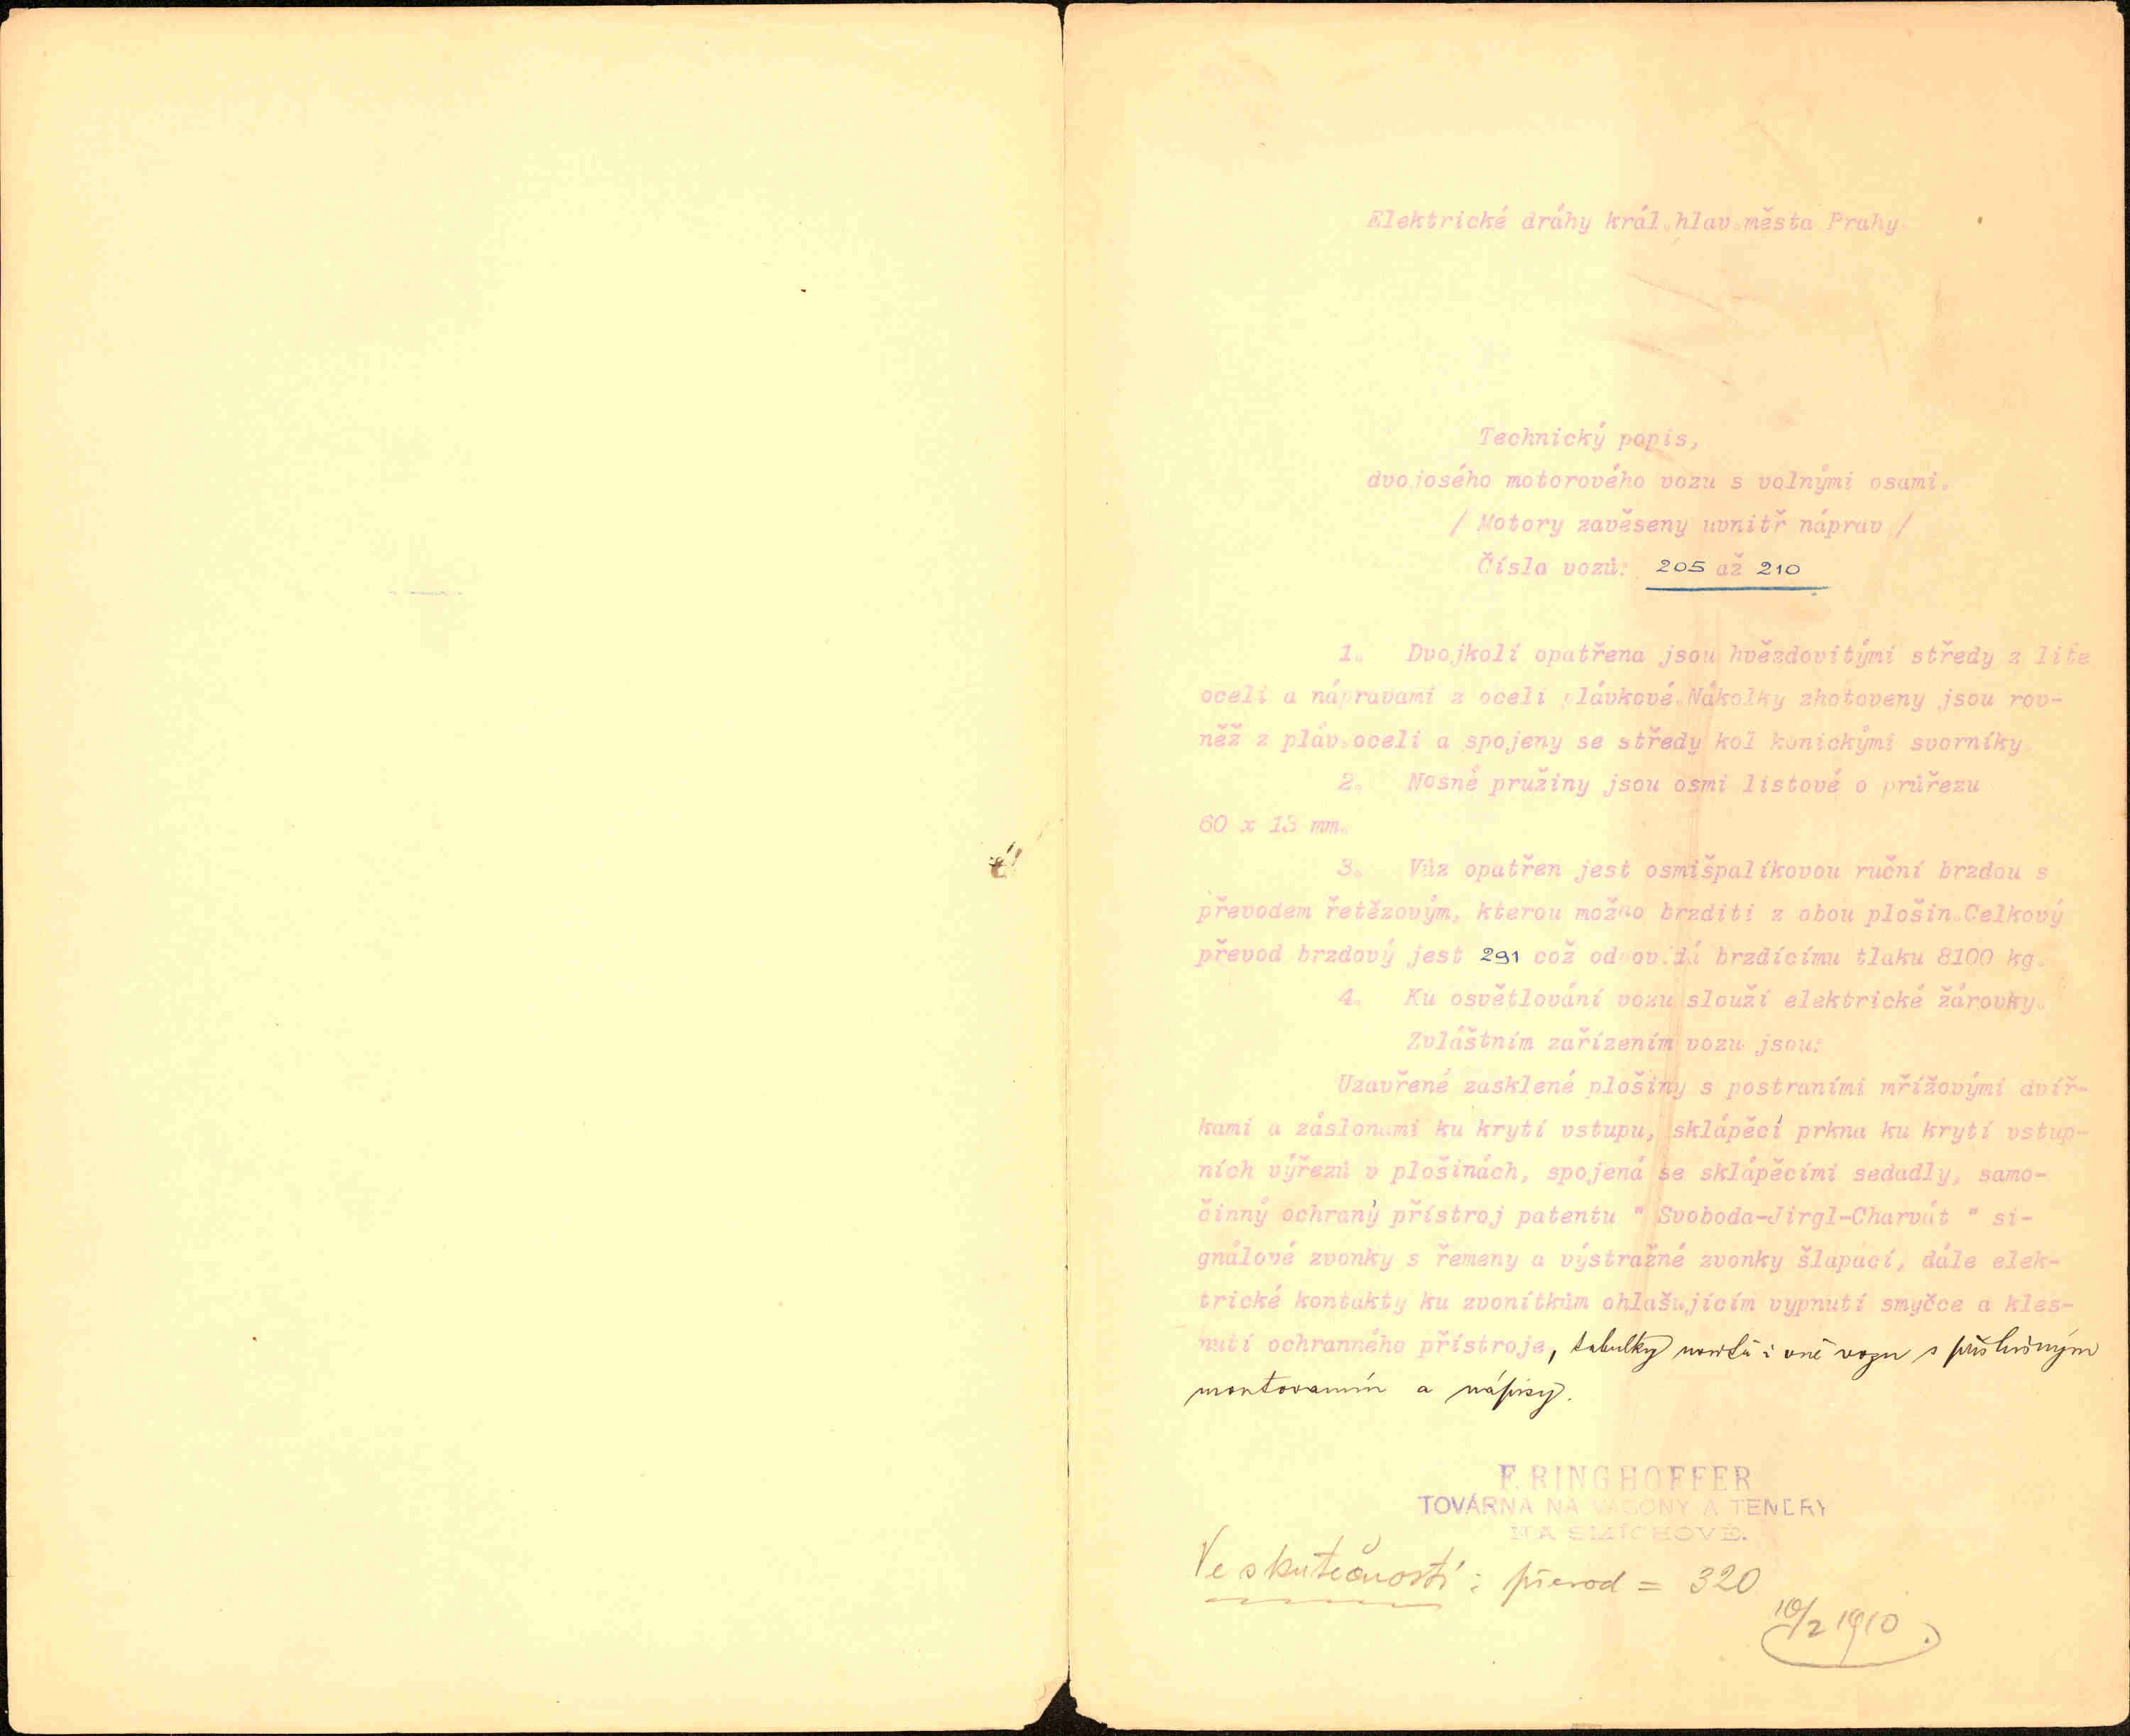 Elektrické dráhy král.hlav.města Prahy
Technický popis,
dvojosého motorového vozu s volnými osami.
/ Motory zavěseny uvnitř náprav /
Čísla vozů: 205 až 210
1. Dvojkolí opatřena jsou hvězdovitými středy z lité
oceli a nápravami z oceli plávkové.Nákolky zhotoveny jsou rov-
něž z pláv.oceli a spojeny se středy kol konickými svorníky.
2. Nosné pružiny jsou osmi listové o průřezu
60 x 13 mm.
3. Vůz opatřen jest osmišpalíkovou ruční brzdou s
převodem řetězovým, kterou možno brzditi z obou plošin.Celkový
převod brzdový jest 291 což odpovídá brzdícímu tlaku 8100 kg.
4. Ku osvětlování vozu slouží elektrické žárovky.
Zvláštním zařízením vozu jsou:
Uzavřené zasklené plošiny s postraními mřížovými dvíř-
kami a záslonami ku krytí vstupu, sklápěcí prkna ku krytí vstup-
ních výřezů v plošinách, spojená se sklápěcími sedadly, samo-
činný ochraný přístroj patentu " Svoboda-Jirgl-Charvát " si-
gnálové zvonky s řemeny a výstražné zvonky šlapací, dále elek-
trické kontakty ku zvonítkům ohlašujícím vypnutí smyčce a kles-
nutí ochranného přístroje, tabulky uvnitř i vně vozu s příslušným
montovaním a nápisy.
F. RINGHOFFER
TOVÁRNA NA VAGONY A TENDRY
NA SMÍCHOVĚ.
Ve skutečnosti: převod = 320
10/2 1910.